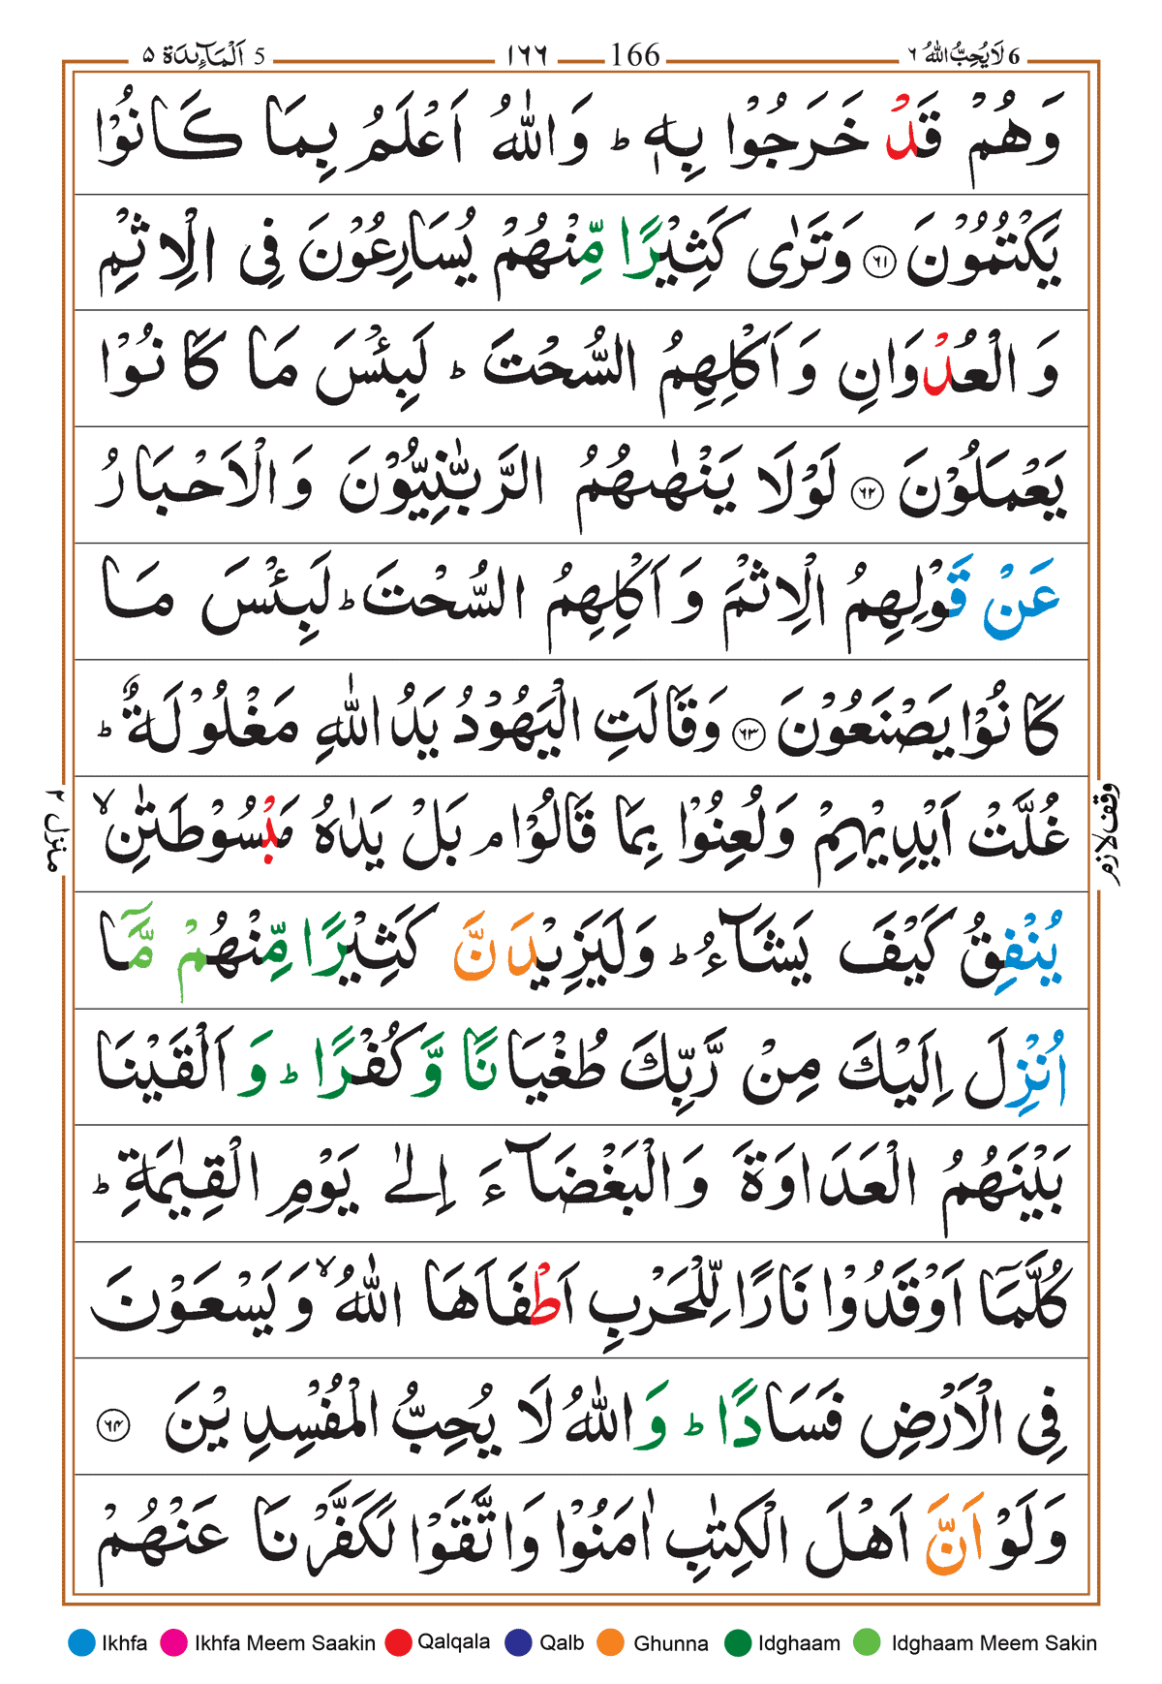 6 لَا يُحِبُّ اللّٰهُ ٦ 166 ١٦٦ 5 اَلْمَآئِدَة ٥
وَهُمْ قَدْ خَرَجُوْا بِهٖ ؕ وَاللّٰهُ اَعْلَمُ بِمَا كَانُوْا
يَكْتُمُوْنَ ﴿۶۱﴾ وَتَرٰى كَثِيْرًا مِّنْهُمْ يُسَارِعُوْنَ فِى الْاِثْمِ
وَالْعُدْوَانِ وَاَكْلِهِمُ السُّحْتَ ؕ لَبِئْسَ مَا كَانُوْا
يَعْمَلُوْنَ ﴿۶۲﴾ لَوْلَا يَنْهٰىهُمُ الرَّبّٰنِيُّوْنَ وَالْاَحْبَارُ
عَنْ قَوْلِهِمُ الْاِثْمَ وَاَكْلِهِمُ السُّحْتَ ؕ لَبِئْسَ مَا
كَانُوْا يَصْنَعُوْنَ ﴿۶۳﴾ وَقَالَتِ الْيَهُوْدُ يَدُ اللّٰهِ مَغْلُوْلَةٌ ؕ
غُلَّتْ اَيْدِيْهِمْ وَلُعِنُوْا بِمَا قَالُوْا ۘ بَلْ يَدٰهُ مَبْسُوْطَتٰنِ ۙ
يُنْفِقُ كَيْفَ يَشَآءُ ؕ وَلَيَزِيْدَنَّ كَثِيْرًا مِّنْهُمْ مَّاۤ
اُنْزِلَ اِلَيْكَ مِنْ رَّبِّكَ طُغْيَانًا وَّكُفْرًا ؕ وَاَلْقَيْنَا
بَيْنَهُمُ الْعَدَاوَةَ وَالْبَغْضَآءَ اِلٰى يَوْمِ الْقِيٰمَةِ ؕ
كُلَّمَاۤ اَوْقَدُوْا نَارًا لِّلْحَرْبِ اَطْفَاَهَا اللّٰهُ ۙ وَيَسْعَوْنَ
فِى الْاَرْضِ فَسَادًا ؕ وَاللّٰهُ لَا يُحِبُّ الْمُفْسِدِيْنَ ﴿۶۴﴾
وَلَوْ اَنَّ اَهْلَ الْكِتٰبِ اٰمَنُوْا وَاتَّقَوْا لَكَفَّرْنَا عَنْهُمْ
وقف لازم
منزل ٢
Ikhfa Ikhfa Meem Saakin Qalqala Qalb Ghunna Idghaam Idghaam Meem Sakin